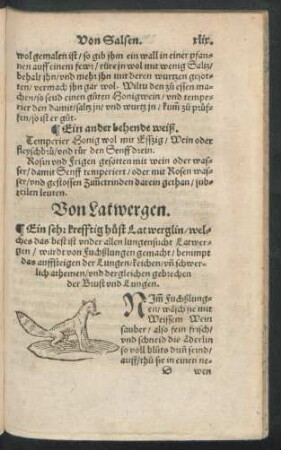 Von Salsen. xlix.
wol gemalen ist / so gib jhm ein wall in einer pfan-
nen auff einem fewr / rüre jn wol mit wenig Saltz /
behalt jhn / vnd mehr jhn mit deren wurtzen gesot-
ten / vermach jhn gar wol. Wiltu den zu essen ma-
chen / so seud einen güten Honigwein / vnd tempe-
rier den damit / saltz jn / vnd wurtz jn / kum zü prüf-
fen / so ist er güt.
¶ Ein ander behende weiß.
Temperier Honig wol mit Essig / Wein oder
fleyschbrü / vnd rür den Senff drein.
Rosin vnd Feigen gesotten mit wein oder was-
ser / damit Senff temperiert / oder mit Rosen was-
ser / vnd gestossen Zimetrinden darein gethan / sub-
tilen leuten.
Von Latwergen.
¶ Ein sehr krefftig hüst Latwerglin / wel-
ches das best ist vnder allen lungensucht Latwer-
gen / würdt von Fuchßlungen gemacht / benimpt
das auffsteigen der Lungen / keichen / vñ schwer-
lich athemen / vnd dergleichen gebrechen
der Brust vnd Lungen.
NJm̃ Fuchßlung-
en / wäsch sie mit
Weissem Wein
sauber / also fein frisch /
vnd schneid die Aederlin
so voll blüts drin̄ seind /
auff / thü sie in einen ne-
G wen